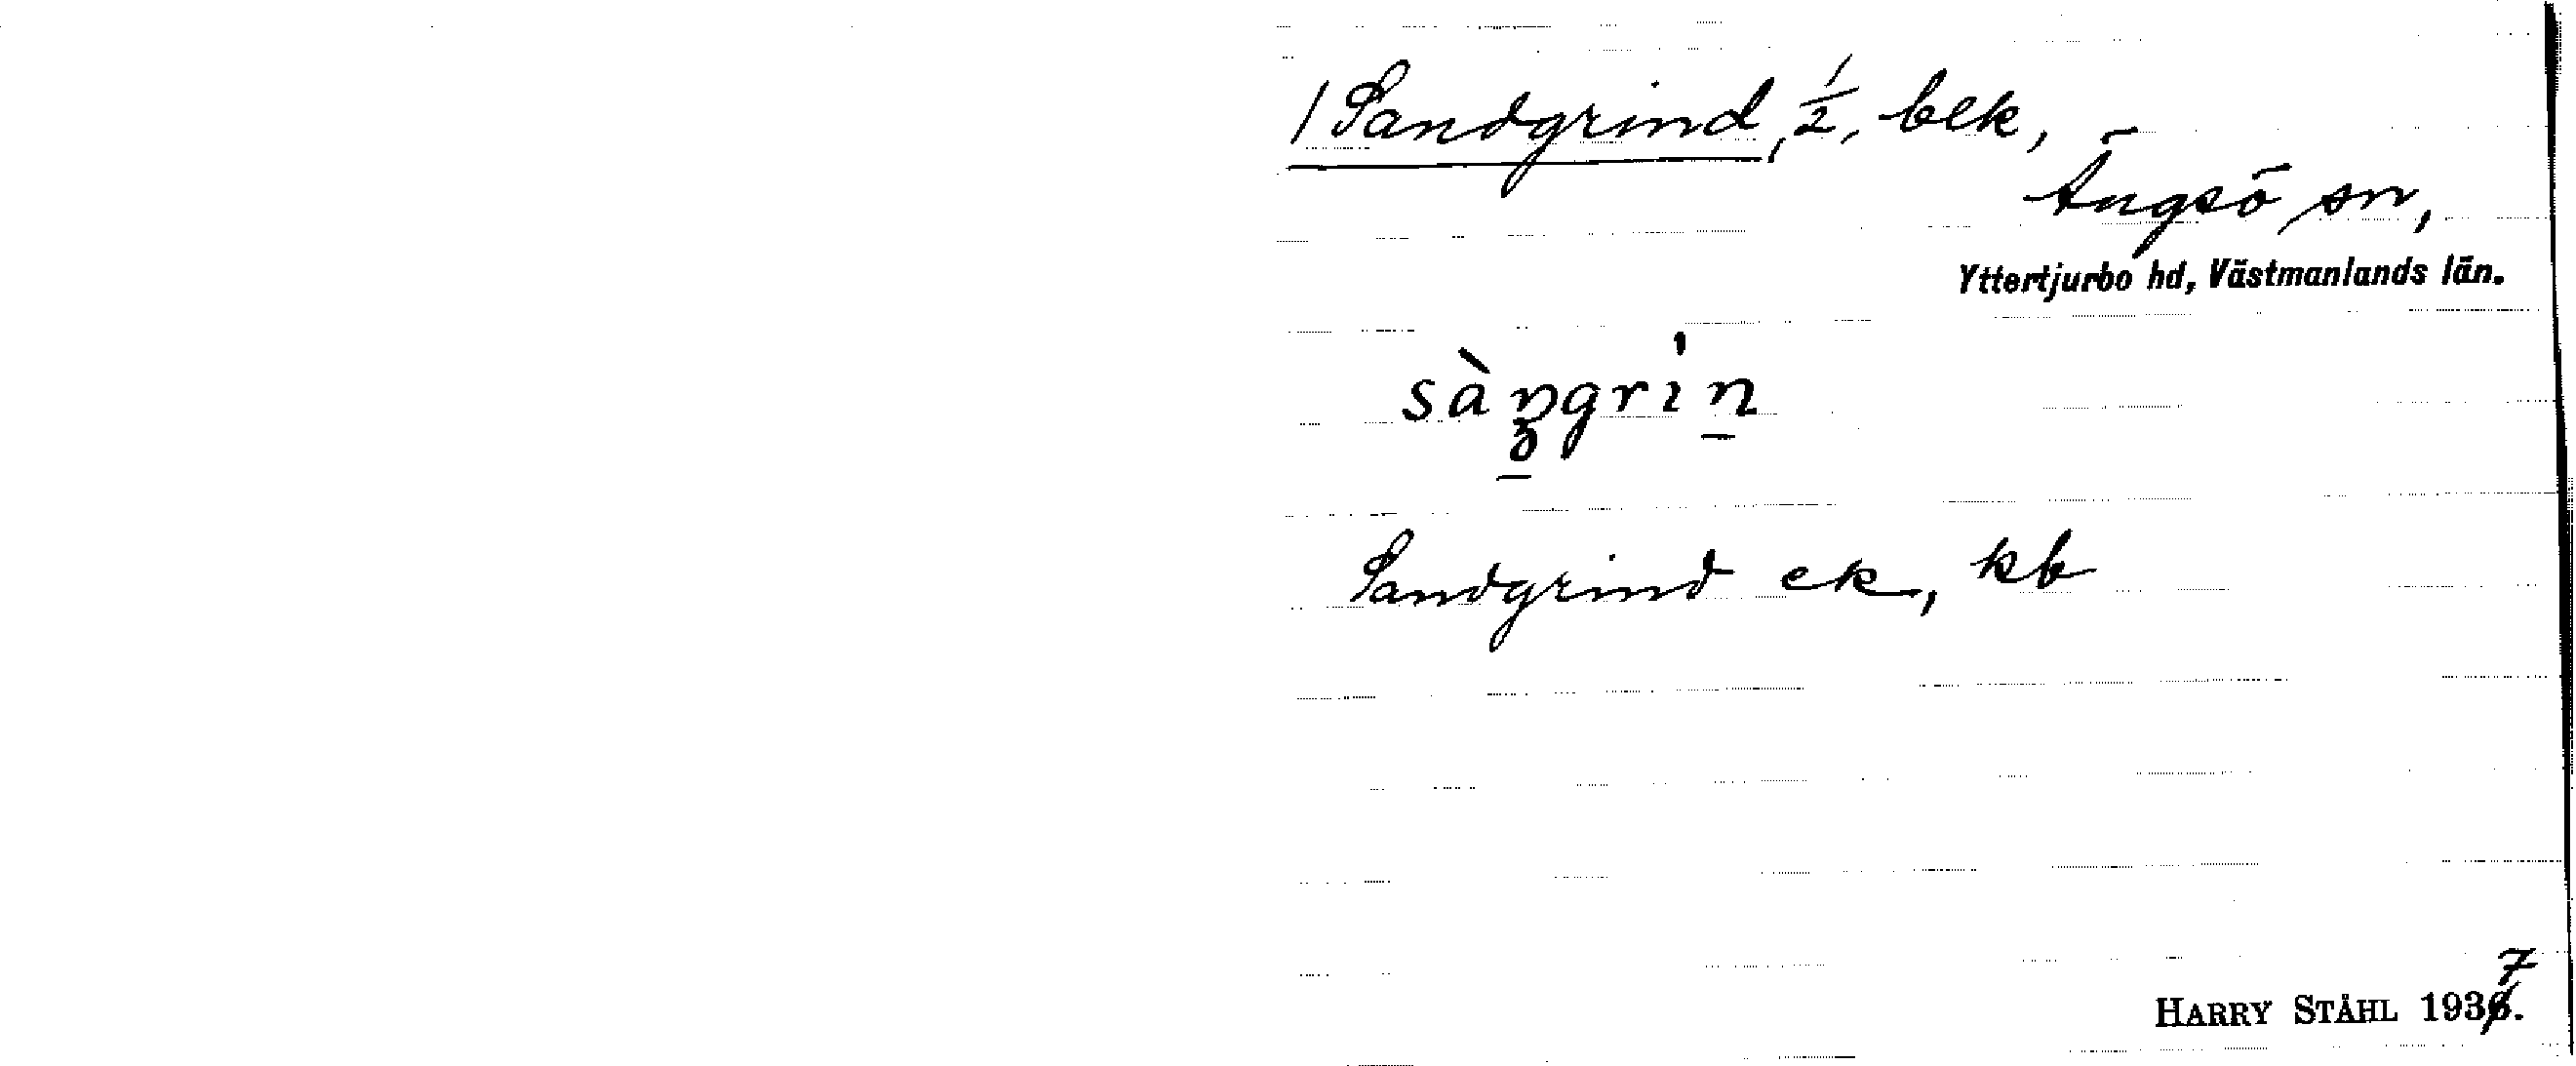 / Sandgrind, 1/2, blk,
Ängsö sn,
Yttertjurbo hd, Västmanlands län.
sàŋgri̍n
Sandgrind ek, kb
7
HARRY STÅHL 1936.